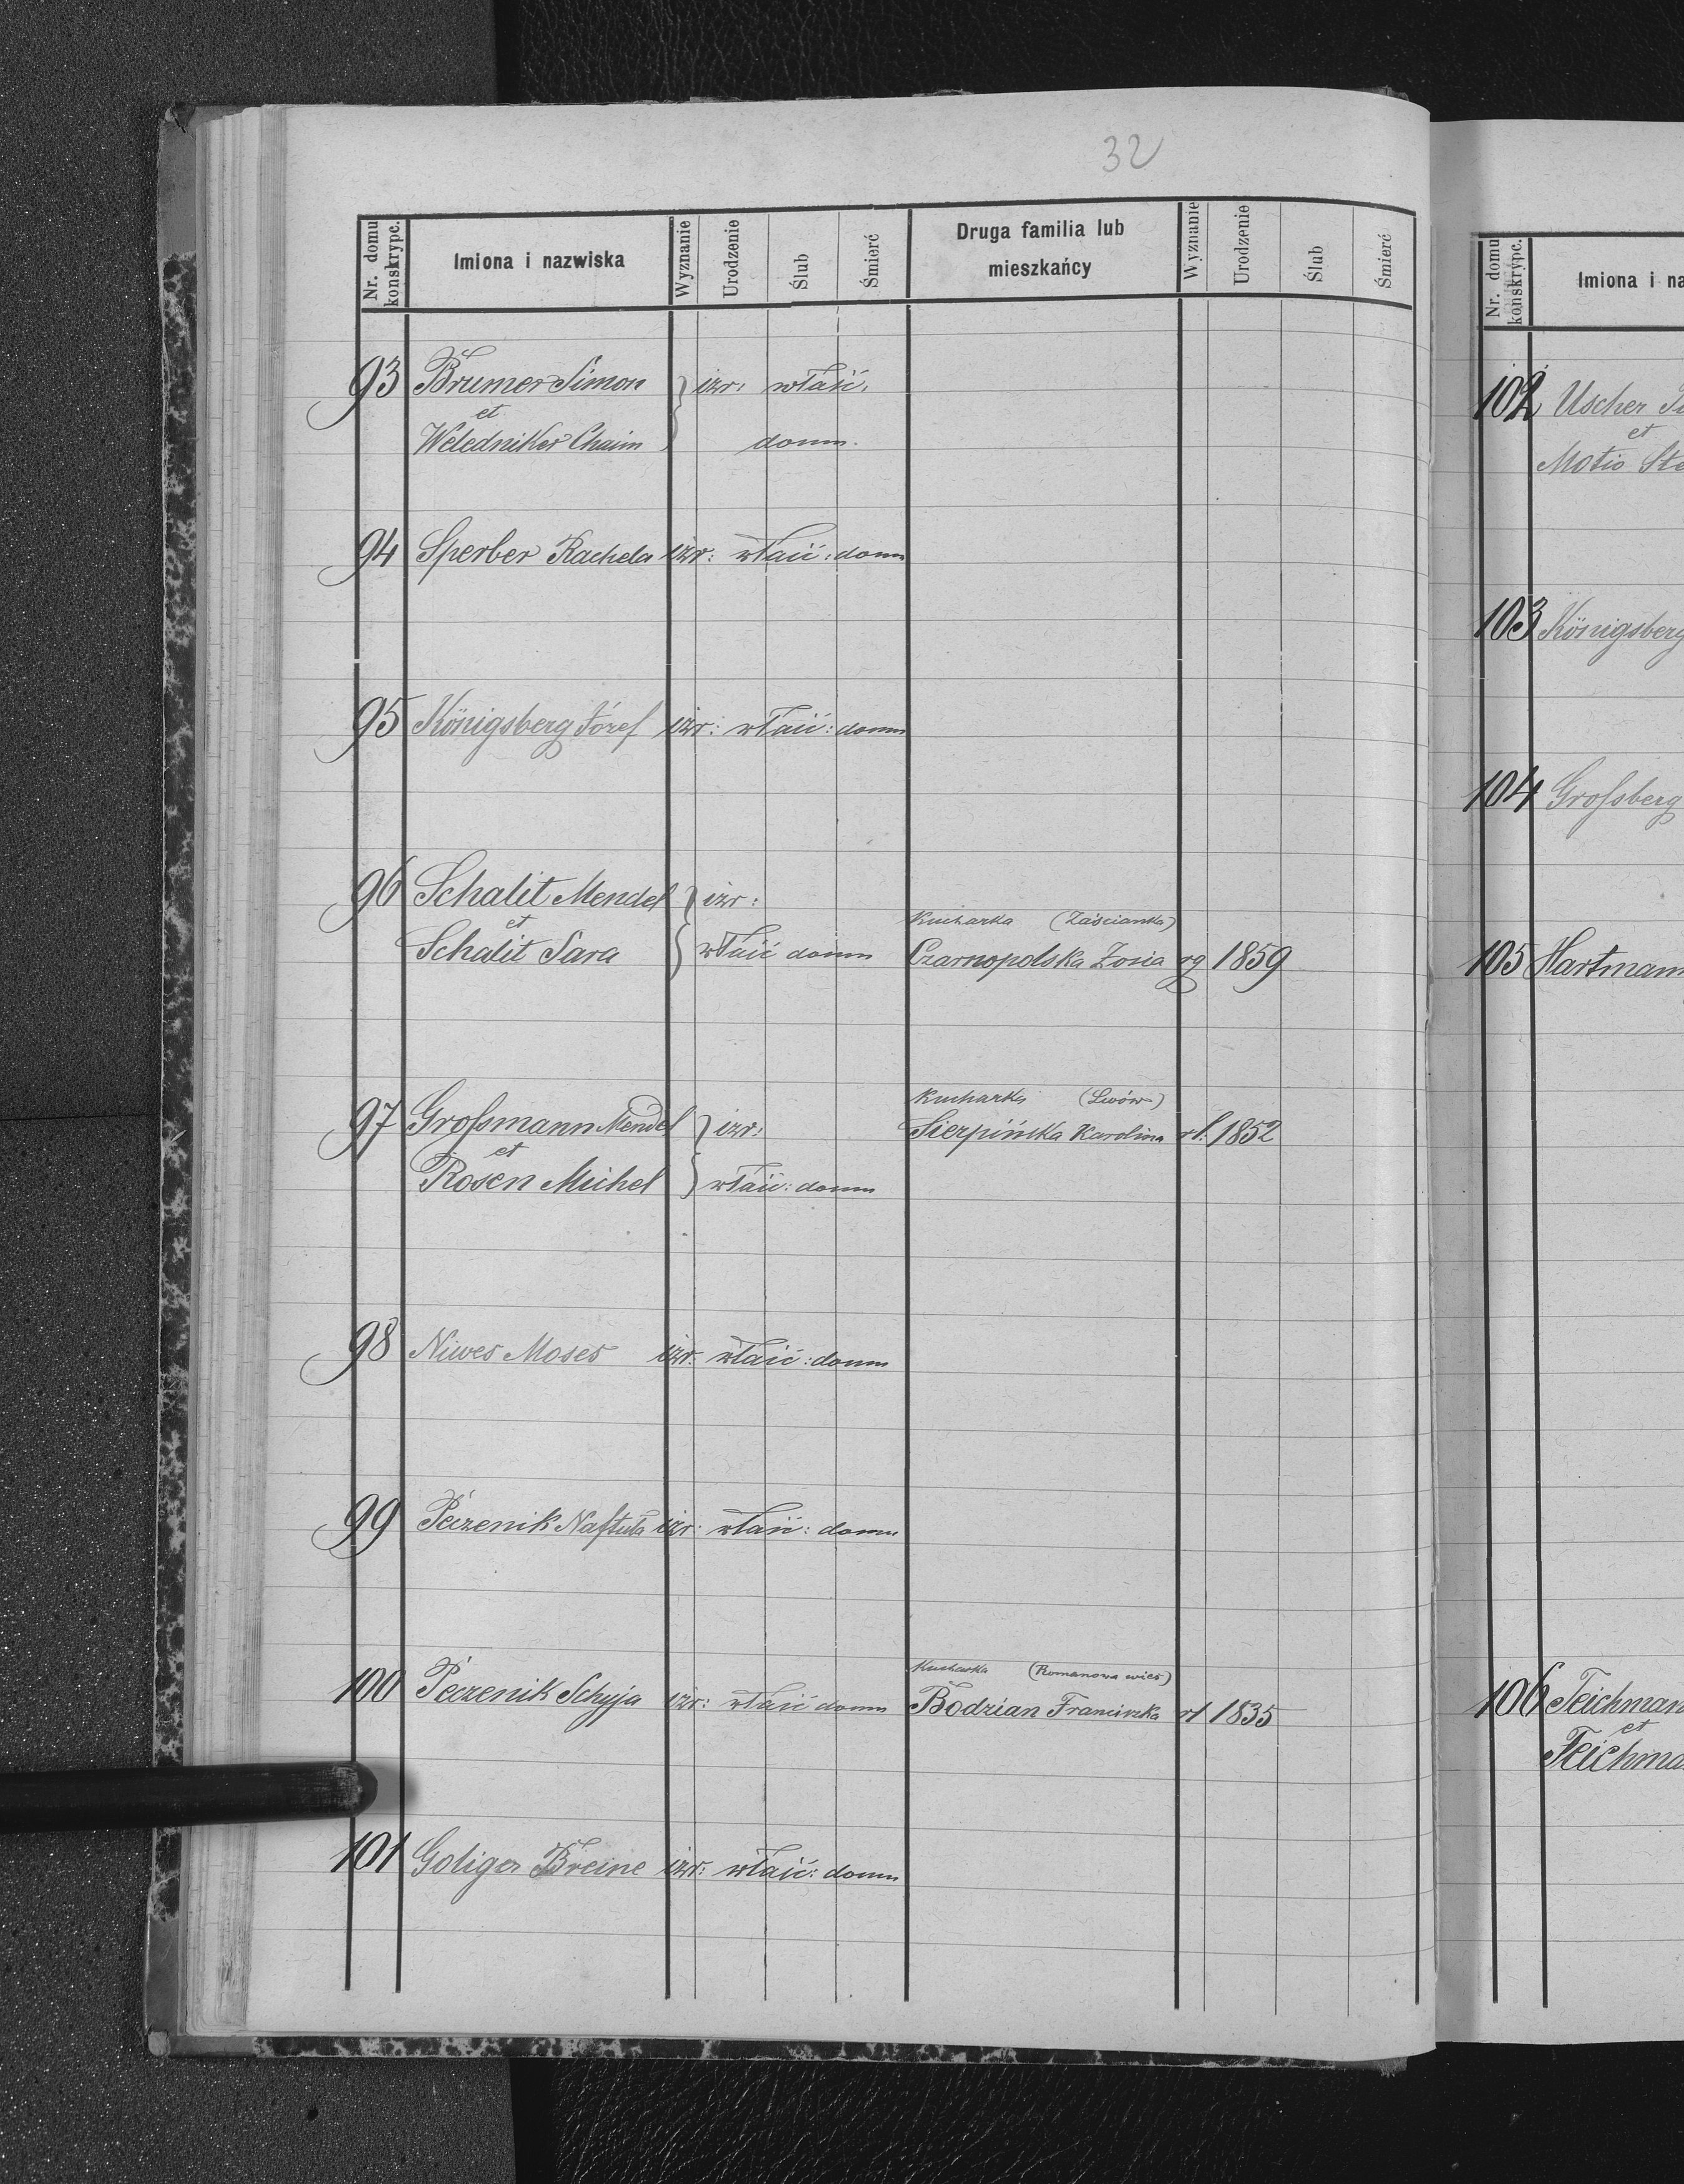 32
Nr. domu konskrypc. Imiona i nazwiska Wyznanie Urodzenie Ślub Śmierć Druga familia lub mieszkańcy Wyznanie Urodzenie Ślub Śmierć
93 Brumer Simon izr: właść:
et
Weledniker Chaim domu
94 Sperber Rachela izr: właść: domu
95 Königsberg Józef izr: właść: domu
96 Schalit Mendel izr:
et Kucharka (Zaścianka)
Schalit Sara właść domu Czarnopolska Zosia rg 1859
Kucharka (Lwów)
97 Großmann Mendel izr: Sierpińska Karolina rł. 1852
et
Rosen Michel właść: domu
98 Niwes Moses izr: właść: domu
99 Peczenik Naftuła izr: właść: domu
Kucharka (Romanowa wieś)
100 Peczenik Schyja izr: właść domu Bodzian Franciszka rł 1835
101 Goliger Breine izr: właść: domu
Nr. domu konskrypc. Imiona i na
102 Uscher
et
Motio Ste
103 Königsberg
104 Großberg
105 Hartmann
106 Teichmann
et
Teichma